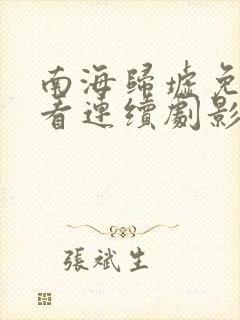 南海歸墟免
看連續劇影
張斌生